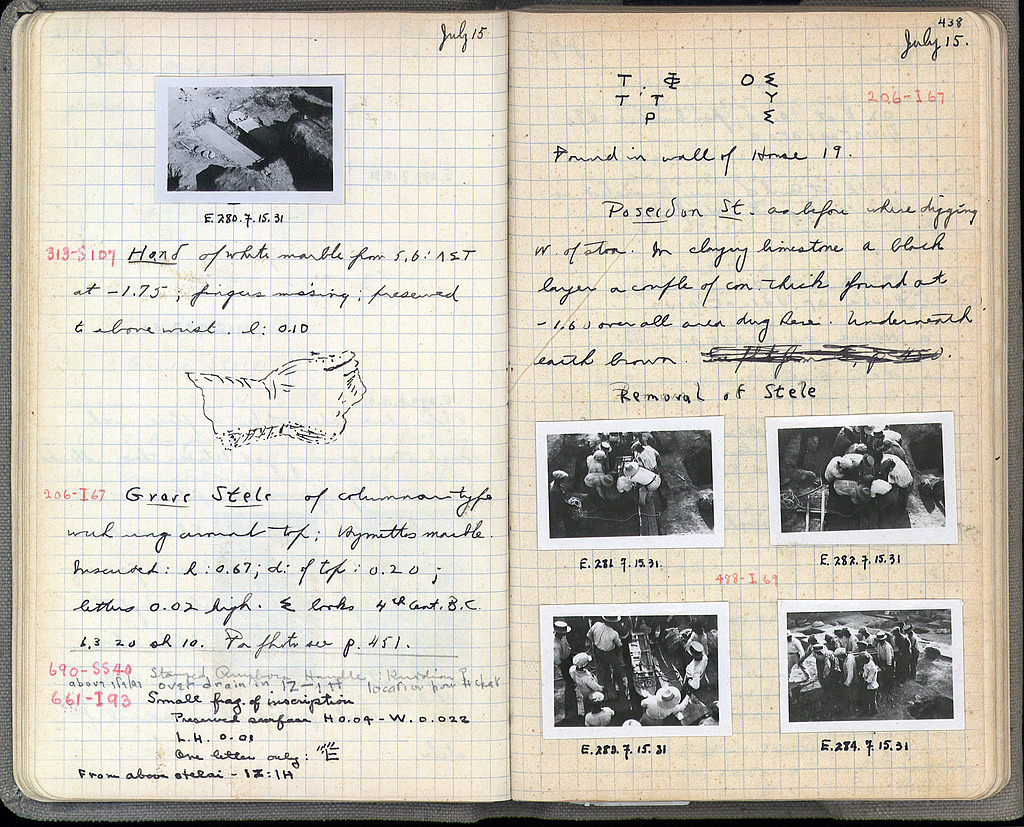 July 15
E.280.7.15.31
313-S107 Hand of white marble from 5,6:ΛΣΤ
at -1.75; fingers missing; preserved
to above wrist. l: 0.10
206-I67 Grave Stele of columnar type
with ring around top; Hymettos marble.
Inscribed: h: 0.67; d: of top: 0.20;
letters 0.02 high. Σ looks 4th Cent. B.C.
63 20 sh 10. For photo see p. 451.
690-SS40 Stamped Amphora Handle; Knidian
above over drain location from
661-I93 Small frag. of inscription
Preserved surface H 0.04 - W. 0.022
L.H. 0.01
One letter only: Ε
From above stelai - ΙΖ:ΙΗ
438
July 15.
Τ Φ Ο Σ
Τ Τ Υ
Ρ Σ
206-I67
Found in wall of House 19.
Poseidon St. as before where digging
W. of stoa. In clayey limestone a black
layer a couple of cm. thick found at
-1.60 over all area dug here. Underneath
earth brown.
Removal of Stele
E.281.7.15.31.
E.282.7.15.31
478-I69
E.283.7.15.31
E.284.7.15.31